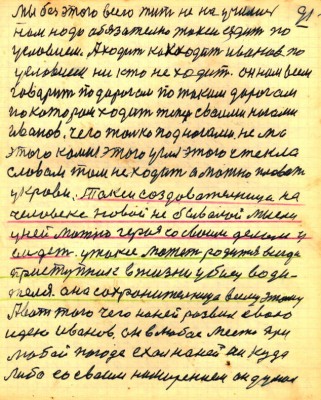 мы без этого всего жить не на училис 91.
нам надо обязательно такси ездит по
условием. А ходит как ходит иванов. по
условием ни кто не ходит. он нам всем
говарит по дарогам по таким дарогам
по каторай ходит тип своими ногами
иванов. чего только под ногами. не ма
этого камня этого угля этого стекла
словам там не ходит а можно плават
у крови. Такси создавателница на
человека новой не бывалой мысли
у ней можно героя со своим делом у
видет. у такие может родится вида
приступник в жизни убиец води-
теля. она сохранителница всему этому
А вот того чего на ней развил свою
идею иванов. он в любое место при
любой погоде ехал на ней ни куда
либо со своим намерением он думал